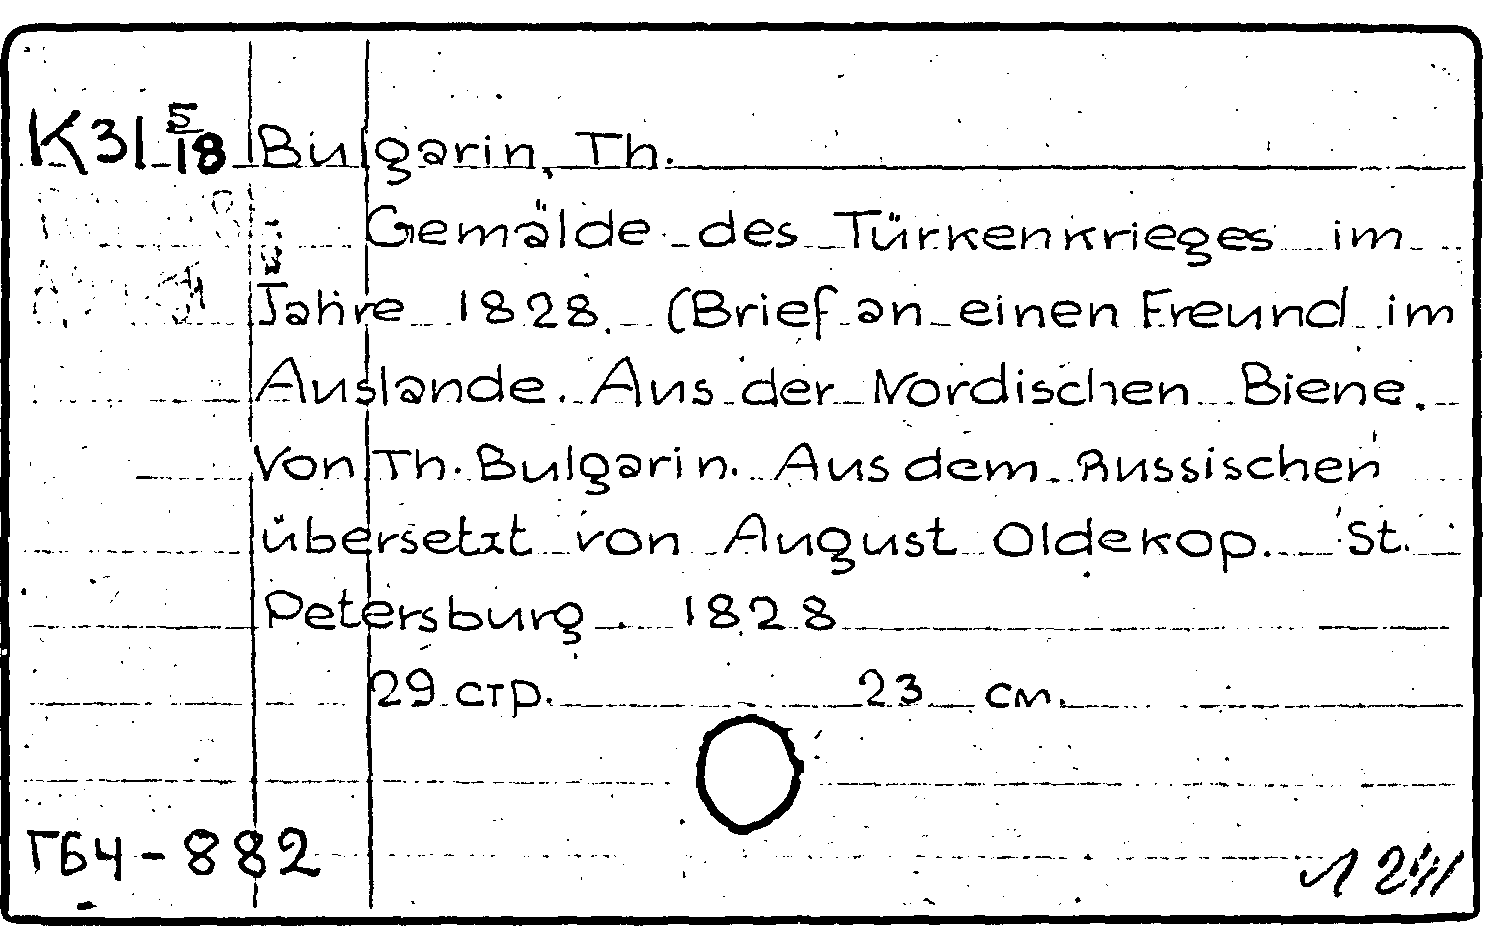 К31 5/18 Bulgarin, Th.
Gemälde des Türkenkrieges im
Jahre 1828. (Brief an einen Freund im
Auslande. Aus der Nordischen Biene.
Von Th. Bulgarin. Aus dem Russischen
übersetzt von August Oldekop. St.
Petersburg. 1828
29 стр. 23 см.
ГБЧ-882